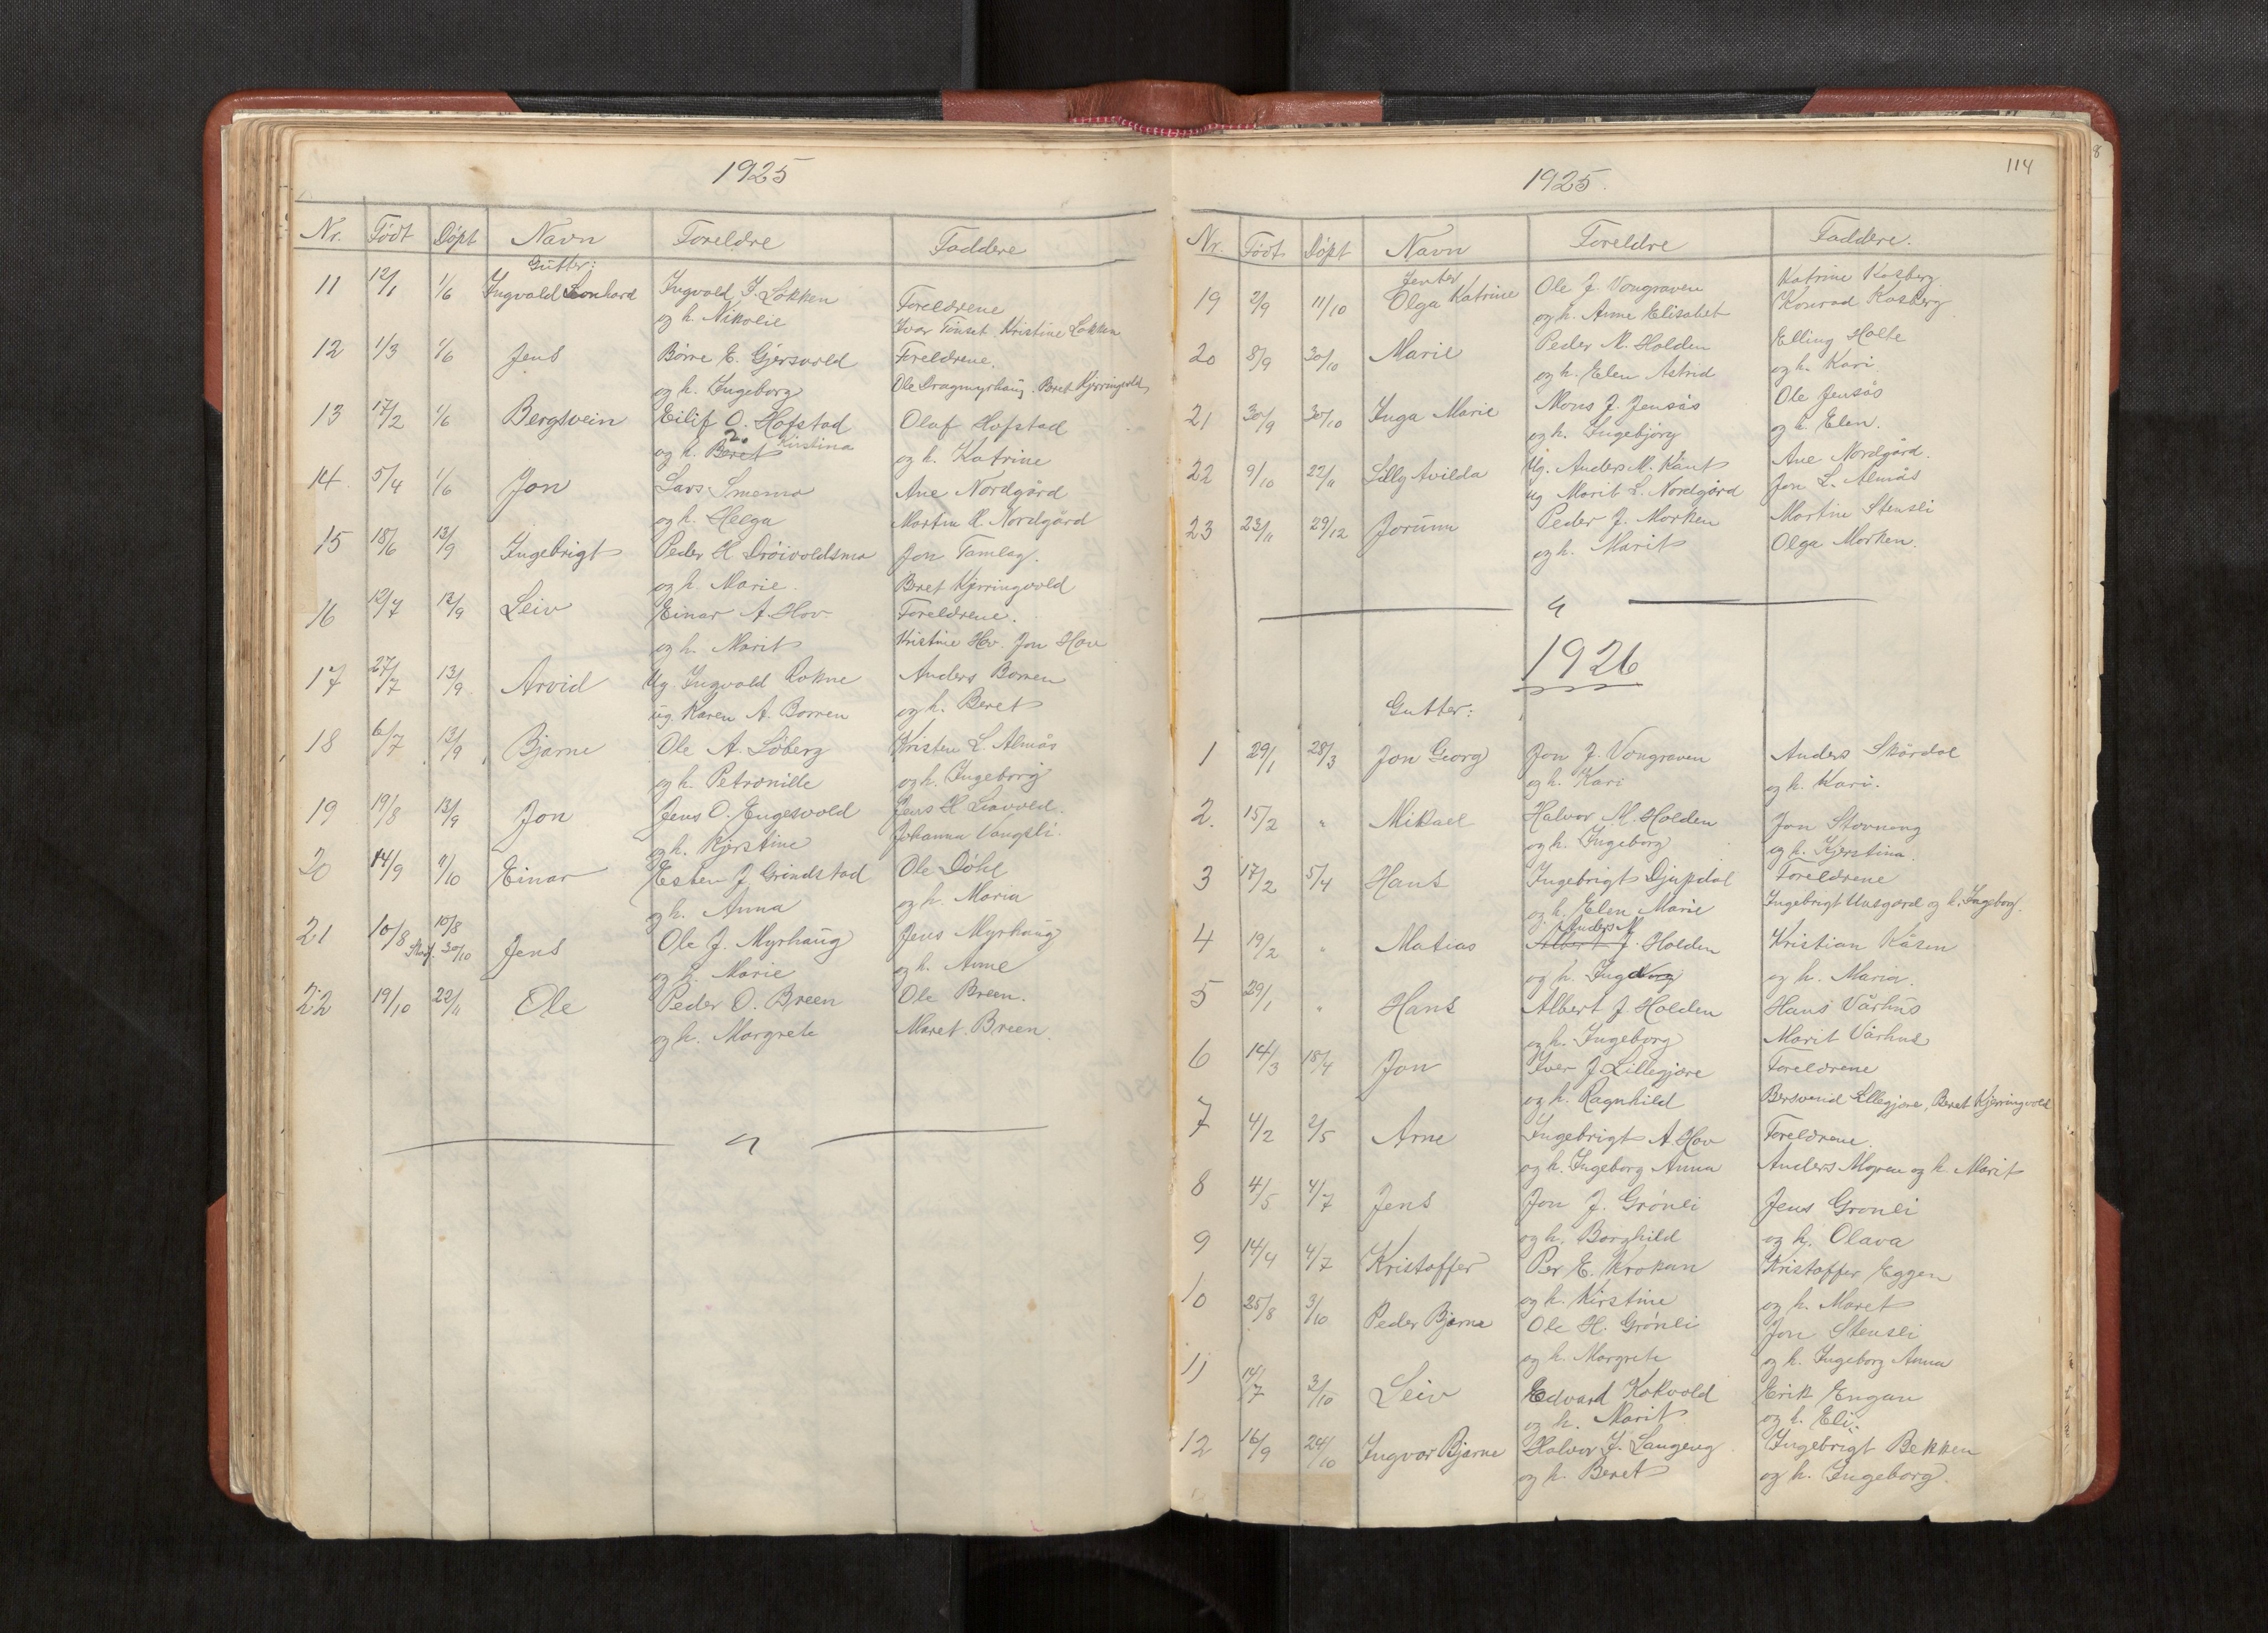 1925
Nr. Født Døpt Navn Foreldre Faddere
Gutter:
11 12/1 1/6 Ingvald Leonhard Ingvald J. Løkken Foreldrene
og h. Nikolie Ivar Tønset. Kristine Løkken
12 1/3 1/6 Jens Børre E. Gjersvold Foreldrene.
og h. Ingeborg Ole Dragmyrhaug. Beret Kjerringvold
13 17/2 1/6 Bergsvein Eilif O. Hofstad Olaf Hofstad
og h. Beret Kirstina og h. Katrine
14 5/4 1/6 Jon Lars Smemo Ane Nordgård
og h. Helga Martin H. Nordgård
15 18/6 13/9 Ingebrigt Peder H. Drøivoldsmo Jon Tamlag.
og h. Marie Beret Kjerringvold
16 12/7 13/9 Leiv Einar A. Hov Foreldrene.
og h. Marit Kristine Hov. Jon Hov
17 27/7 13/9 Arvid Ug. Ingvald Rokne Anders Borren
ug. Karen A. Borren og h. Beret
18 6/7 13/9 Bjarne Ole A. Soberg Kristen L. Almås
og h. Petronille og h. Ingeborg
19 19/8 13/9 Jon Jens O. Engesvold Jens H. Liavold.
og h. Kjerstine Johanna Vongsli.
20 14/9 11/10 Einar Esten J. Grindstad Ole Døhl
og h. Anna og h. Maria
21 10/8 10/8 Stadf. 30/10 Jens Ole J. Myrhaug Jens Myrhaug
og h. Marie og h. Anne
22 19/10 22/11 Ole Peder O. Breen Ole Breen.
og h. Margrete Maret Breen.
114
1925.
Nr. Født Døpt Navn Foreldre Faddere.
Jenter
19 2/9 11/10 Olga Katrine Ole J. Vongraven Katrine Kosberg.
og h. Anne Elisabet Konrad Kosberg
20 8/9 30/10 Marie Peder M. Holden Elling Holte
og h. Elen Astrid og h. Kari.
21 30/9 30/10 Inga Marie Mons J. Jensås Ole Jensås
og h. Ingebjørg og h. Elen.
22 9/10 22/11 Lilly Avilda Ug. Anders M. Kant Ane Nordgård.
ug Marit L. Nordgård Jon L. Almås
23 23/11 29/12 Jorunn Peder J. Morken Martin Stensli
og h. Marit Olga Morken.
1926
Gutter:
1 29/1 28/3 Jon Georg Jon J. Vongraven Anders Skårdal
og h. Kari og h. Kari.
2. 15/2 " Mikael Halvor M. Holden Jon Stovneng
og h. Ingeborg og h. Kjerstina.
3 17/2 5/4 Hans Ingebrigt Djupdal Foreldrene
og h. Elen Marie Ingebrigt Unsgård og h. Ingeborg.
Anders M
4 19/2 " Matias Albert J. Holden Kristian Kåsen
og h. Ingeborg og h. Maria.
5 29/1 " Hans Albert J. Holden Hans Vårhus
og h. Ingeborg Marit Vårhus
6 14/3 18/4 Jon Iver J. Lillegjære Foreldrene
og h. Ragnhild Bersvend Lillegjære, Beret Kjerringvold
7 4/2 2/5 Arne Ingebrigt A. Hov Foreldrene.
og h. Ingeborg Anna Anders Mogren og h. Marit
8 4/5 4/7 Jens Jon J. Grønli Jens Grønli
og h. Borghild og h. Olava
9 14/4 4/7 Kristoffer Per E. Krokan Kristoffer Eggen
og h. Kirstine og h. Maret
10 25/8 3/10 Peder Bjarne Ole H. Grønli Jon Stensli
og h. Margrete og h. Ingeborg Anna
11 14/7 3/10 Leiv Edvard Kokvold Erik Engan
og h. Marit og h. Eli.
12 16/9 24/10 Ingvar Bjarne Halvor J. Langeng Ingebrigt Bekken
og h. Beret og h. Ingeborg.